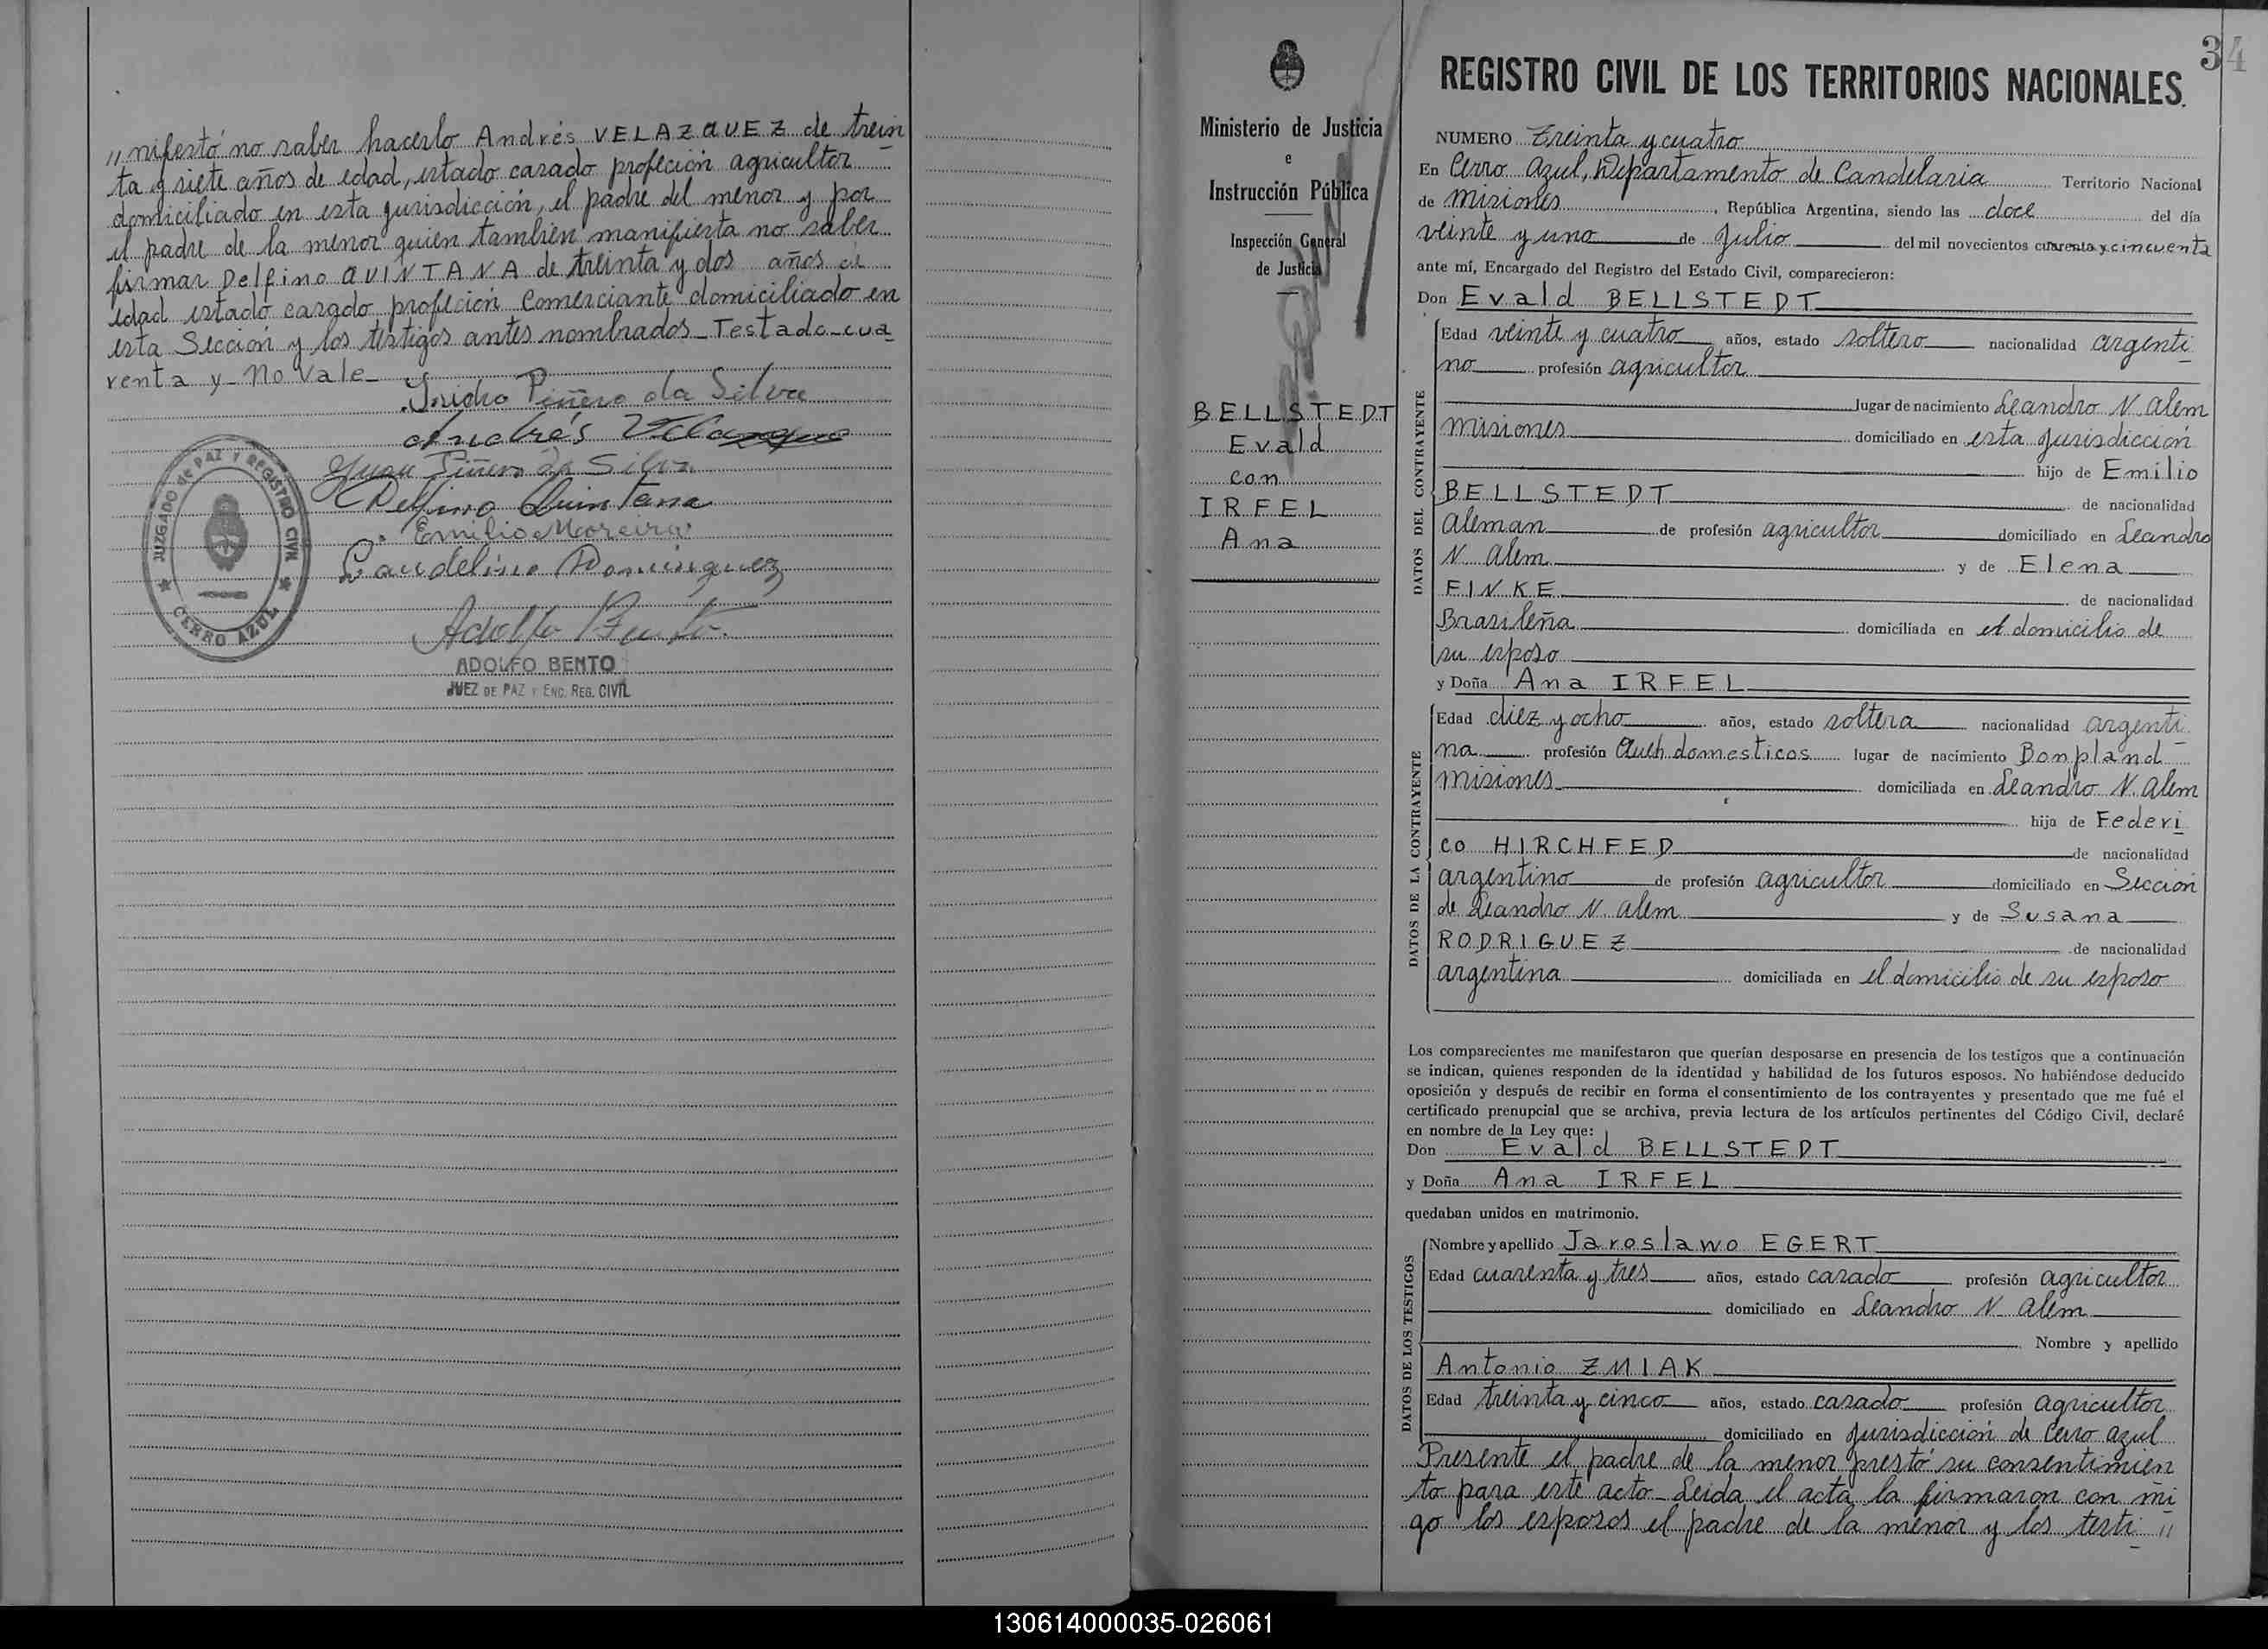 "nifestó no saber hacerlo Andrés VELAZQUEZ de trein
ta y siete años de edad, estado casado profeción agricultor
domiciliado en esta jurisdicción, el padre del menor y por
el padre de la menor quien tambien manifiesta no saber
firmar Delfino QUINTANA de treinta y dos años de
edad estado casado profeción Comerciante domiciliado en
esta Sección y los testigos antes nombrados_Testado_cua
renta y_No Vale_
Isidro Piñero da Silva
Andrés
Juan Piñero da Silva
Delfino Quintana
Emilio Moreira
Candelino Dominguez
Adolfo Bento
ADOLFO BENTO
JUEZ DE PAZ Y ENC. REG. CIVIL
JUZGADO de PAZ Y REGISTRO CIVIL
CERRO AZUL
Ministerio de Justicia
e
Instrucción Pública
Inspección General
de Justicia
BELLSTEDT
Evald
con
IRFEL
Ana
34
REGISTRO CIVIL DE LOS TERRITORIOS NACIONALES.
NUMERO Treinta y cuatro
En Cerro Azul, Departamento de Candelaria Territorio Nacional
de Misiones, República Argentina, siendo las doce del día
veinte y uno de Julio del mil novecientos cuarenta y cincuenta
ante mí, Encargado del Registro del Estado Civil, comparecieron:
Don Evald BELLSTEDT
DATOS DEL CONTRAYENTE
Edad veinte y cuatro años, estado soltero nacionalidad argenti
no profesión agricultor
lugar de nacimiento Leandro N. Alem
Misiones domiciliado en esta Jurisdicción
hijo de Emilio
BELLSTEDT de nacionalidad
Aleman de profesión agricultor domiciliado en Leandro
N. Alem y de Elena
FINKE de nacionalidad
Brasileña domiciliada en el domicilio de
su esposo
y Doña Ana IRFEL
DATOS DE LA CONTRAYENTE
Edad diez y ocho años, estado soltera nacionalidad argenti
na profesión Queh. domesticos lugar de nacimiento Bonpland
Misiones domiciliada en Leandro N. Alem
hija de Federi
co HIRCHFED de nacionalidad
argentino de profesión agricultor domiciliado en Sección
de Leandro N. Alem y de Susana
RODRIGUEZ de nacionalidad
argentina domiciliada en el domicilio de su esposo
Los comparecientes me manifestaron que querían desposarse en presencia de los testigos que a continuación
se indican, quienes responden de la identidad y habilidad de los futuros esposos. No habiéndose deducido
oposición y después de recibir en forma el consentimiento de los contrayentes y presentado que me fué el
certificado prenupcial que se archiva, previa lectura de los artículos pertinentes del Código Civil, declaré
en nombre de la Ley que:
Don Evald BELLSTEDT
y Doña Ana IRFEL
quedaban unidos en matrimonio.
DATOS DE LOS TESTIGOS
Nombre y apellido Jaroslawo EGERT
Edad cuarenta y tres años, estado casado profesión agricultor
domiciliado en Leandro N Alem
Nombre y apellido
Antonio ZMIAK
Edad treinta y cinco años, estado casado profesión agricultor
domiciliado en Jurisdicción de Cerro Azul
Presente el padre de la menor prestó su consentimien
to para este acto_Leida el acta la firmaron con mi
go los esposos el padre de la menor y los testi "
130614000035-026061